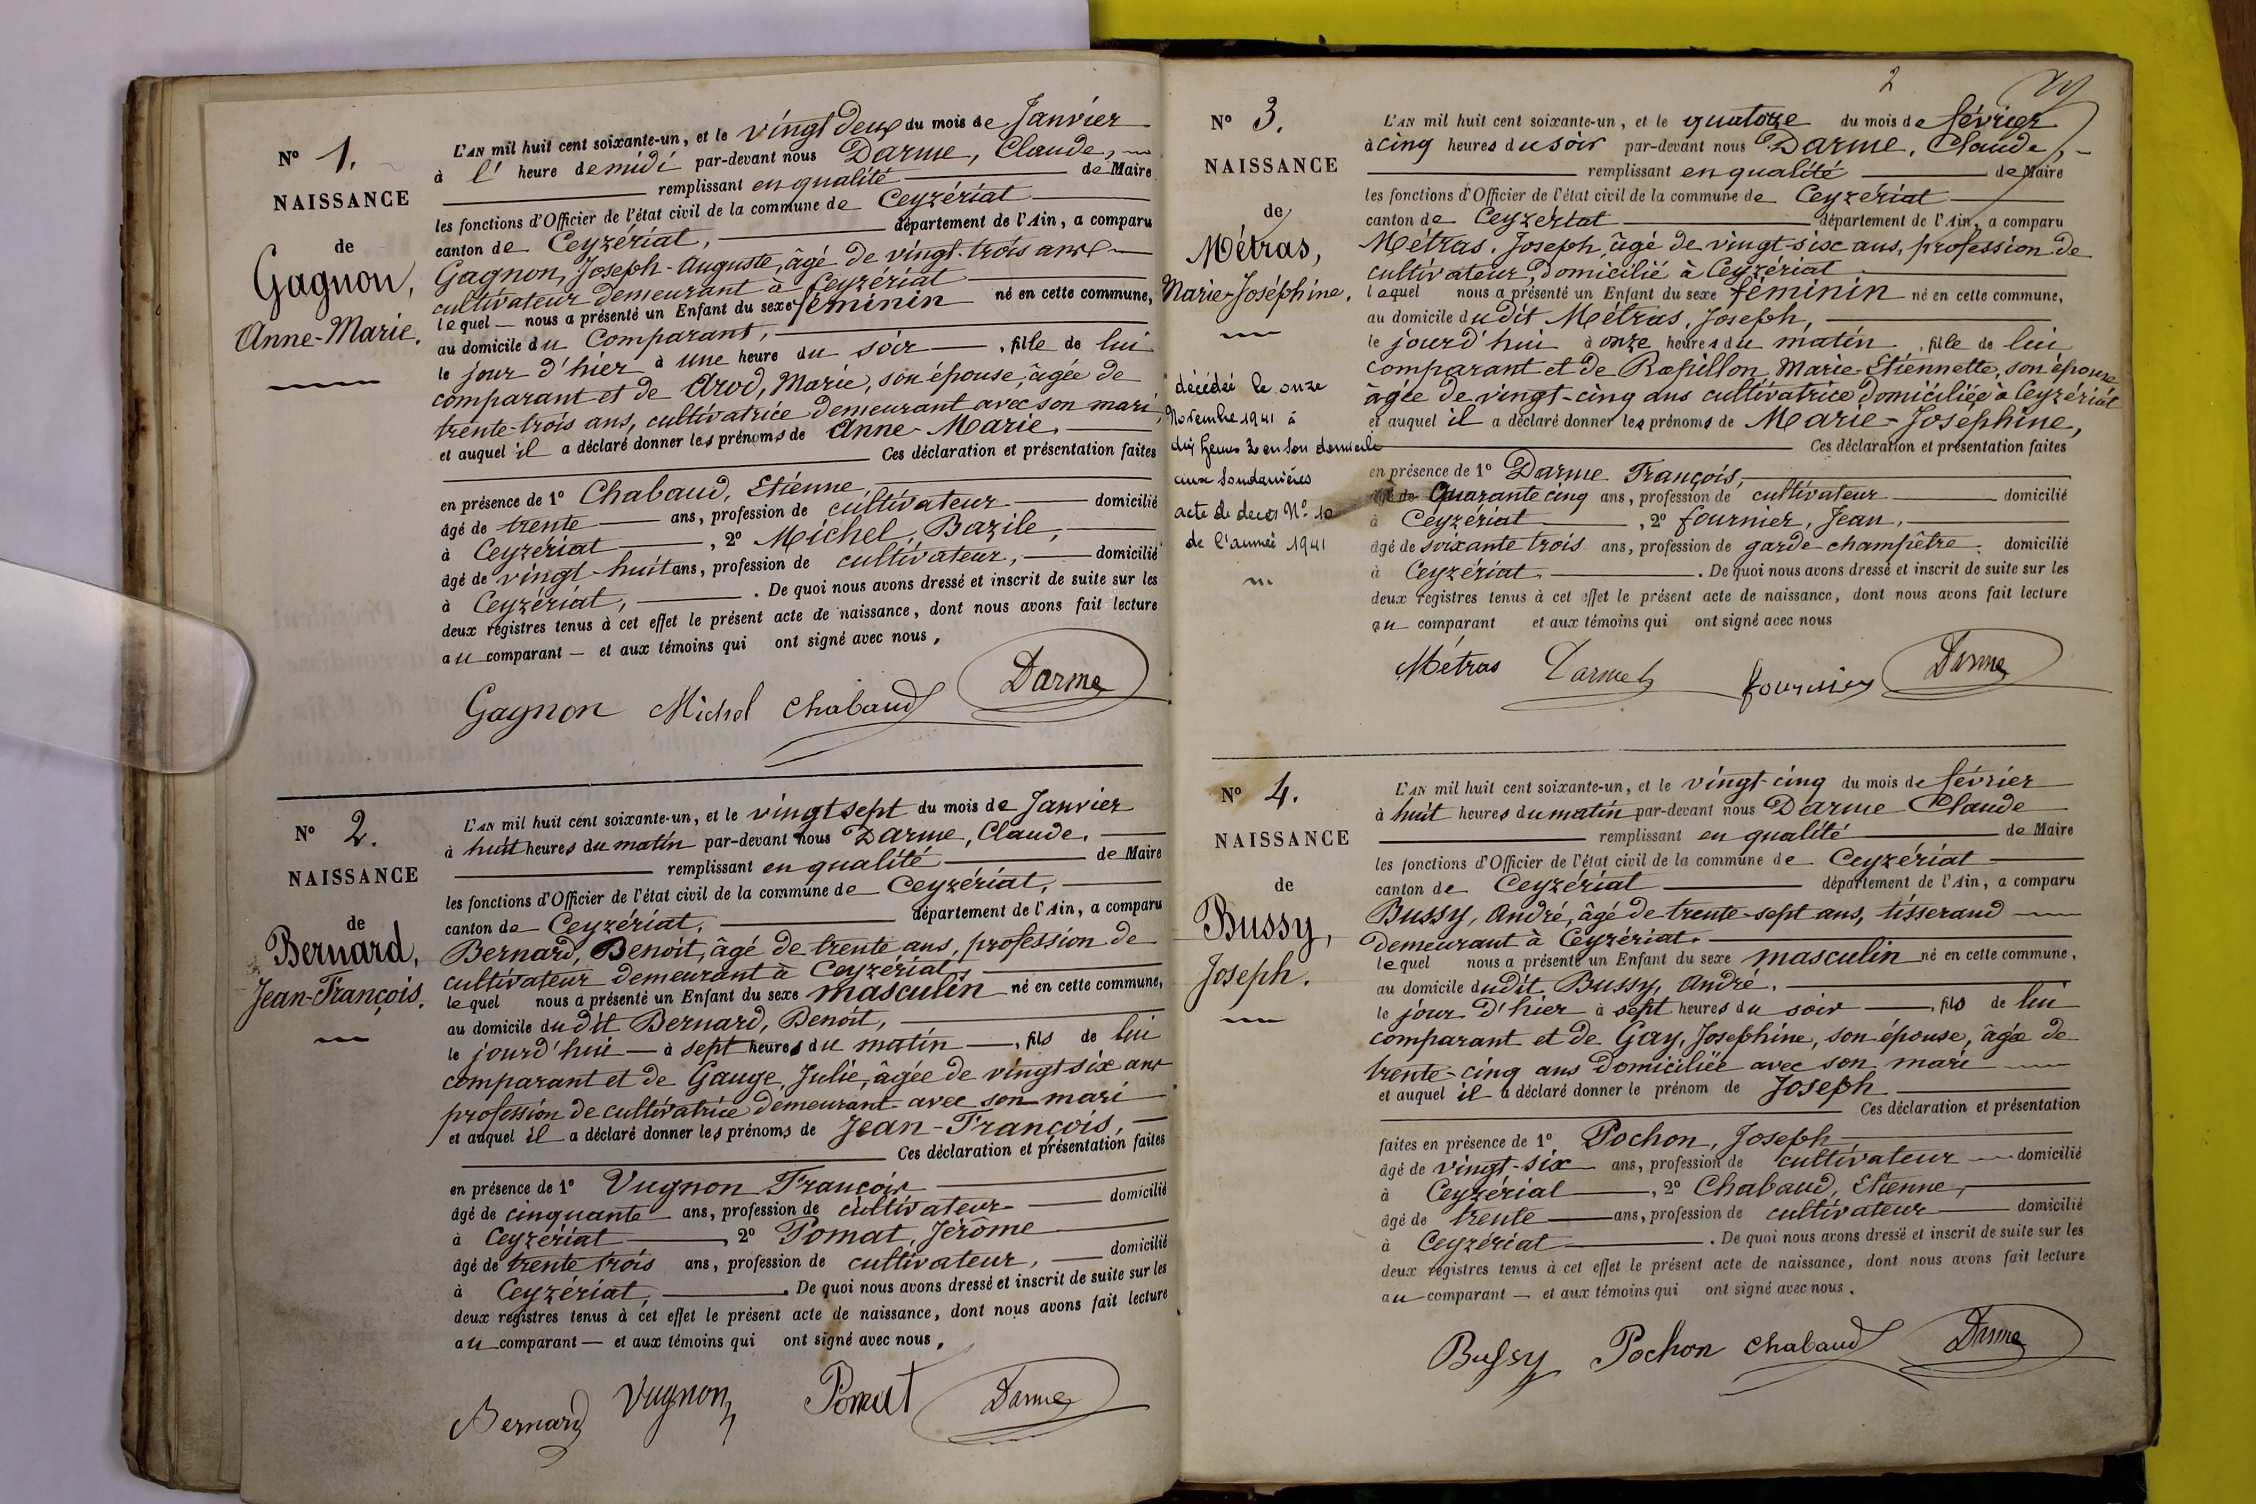 N° 1.
NAISSANCE
de
Gagnon,
Anne-Marie.
L'AN mil huit cent soixante-un, et le vingt deux du mois de Janvier
à l' heure de midi par-devant nous Darme, Claude,
remplissant en qualité de Maire
les fonctions d'Officier de l'état civil de la commune de Ceyzériat
canton de Ceyzériat, département de l'Ain, a comparu
Gagnon, Joseph-Auguste, âgé de vingt-trois ans
cultivateur demeurant à Ceyzériat
lequel nous a présenté un Enfant du sexe féminin né en cette commune,
au domicile du Comparant,
le jour d'hier à une heure du soir , fille de lui
comparant et de Arod, Marie, son épouse, âgée de
trente-trois ans, cultivatrice demeurant avec son mari,
et auquel il a déclaré donner les prénoms de Anne-Marie.
Ces déclaration et présentation faites
en présence de 1° Chabaud, Etienne
âgé de trente ans, profession de cultivateur domicilié
à Ceyzériat , 2° Michel, Bazile,
âgé de vingt-huit ans, profession de cultivateur, domicilié
à Ceyzériat, . De quoi nous avons dressé et inscrit de suite sur les
deux registres tenus à cet effet le présent acte de naissance, dont nous avons fait lecture
au comparant — et aux témoins qui ont signé avec nous,
Gagnon Michel Chabaud Darme
N° 2.
NAISSANCE
de
Bernard,
Jean-François.
L'AN mil huit cent soixante-un, et le vingt sept du mois de Janvier
à huit heures du matin par-devant nous Darme, Claude.
remplissant en qualité de Maire
les fonctions d'Officier de l'état civil de la commune de Ceyzériat,
canton de Ceyzériat, département de l'Ain, a comparu
Bernard, Benoit, âgé de trente ans, profession de
cultivateur demeurant à Ceyzériat,
lequel nous a présenté un Enfant du sexe masculin né en cette commune,
au domicile dudit Bernard, Benoit,
le jourd'hui — à sept heures du matin —, fils de lui
comparant et de Gauge, Julie, âgée de vingt six ans
profession de cultivatrice demeurant avec son mari
et auquel il a déclaré donner les prénoms de Jean-François,
Ces déclaration et présentation faites
en présence de 1° Vugnon François
âgé de cinquante ans, profession de cultivateur domicilié
à Ceyzériat , 2° Pomat, Jérôme
âgé de trente trois ans, profession de cultivateur, domicilié
à Ceyzériat, . De quoi nous avons dressé et inscrit de suite sur les
deux registres tenus à cet effet le présent acte de naissance, dont nous avons fait lecture
au comparant — et aux témoins qui ont signé avec nous,
Bernard Vugnon Pomat Darme
2
N° 3.
NAISSANCE
de
Métras,
Marie-Joséphine.
décédée le onze
Novembre 1941 à
dix heures 30 en son domicile
aux
acte de décès N° 10
de l'année 1941
L'AN mil huit cent soixante-un, et le quatorze du mois de février
à cinq heures du soir par-devant nous Darme, Claude,
remplissant en qualité de Maire
les fonctions d'Officier de l'état civil de la commune de Ceyzériat
canton de Ceyzériat département de l'Ain, a comparu
Métras, Joseph, âgé de vingt-six ans, profession de
cultivateur, domicilié à Ceyzériat
lequel nous a présenté un Enfant du sexe féminin né en cette commune,
au domicile dudit Métras, Joseph,
le jourd'hui à onze heures du matin , fille de lui
comparant et de Marie-Etiennette, son épouse
âgée de vingt-cinq ans cultivatrice domiciliée à Ceyzériat
et auquel il a déclaré donner les prénoms de Marie-Joséphine,
Ces déclaration et présentation faites
en présence de 1° Darme François,
âgé de Quarante cinq ans, profession de cultivateur domicilié
à Ceyzériat , 2° fournier, Jean,
âgé de soixante trois ans, profession de garde-champêtre. domicilié
à Ceyzériat. . De quoi nous avons dressé et inscrit de suite sur les
deux registres tenus à cet effet le présent acte de naissance, dont nous avons fait lecture
au comparant et aux témoins qui ont signé avec nous
Métras Darme fournier Darme
N° 4.
NAISSANCE
de
Bussy,
Joseph.
L'AN mil huit cent soixante-un, et le vingt-cinq du mois de février
à huit heures du matin par-devant nous Darme Claude
remplissant en qualité de Maire
les fonctions d'Officier de l'état civil de la commune de Ceyzériat
canton de Ceyzériat département de l'Ain, a comparu
Bussy, André, âgé de trente-sept ans, tisserand
demeurant à Ceyzériat.
lequel nous a présenté un Enfant du sexe masculin né en cette commune,
au domicile dudit Bussy, André.
le jour d'hier à sept heures du soir , fils de lui
comparant et de Gay, Josephine, son épouse, âgée de
trente-cinq ans domiciliée avec son mari
et auquel il a déclaré donner le prénom de Joseph
Ces déclaration et présentation
faites en présence de 1° Pochon, Joseph
âgé de vingt-six ans, profession de cultivateur domicilié
à Ceyzériat , 2° Chabaud, Etienne,
âgé de trente ans, profession de cultivateur domicilié
à Ceyzériat . De quoi nous avons dressé et inscrit de suite sur les
deux registres tenus à cet effet le présent acte de naissance, dont nous avons fait lecture
au comparant — et aux témoins qui ont signé avec nous.
Bussy Pochon Chabaud Darme